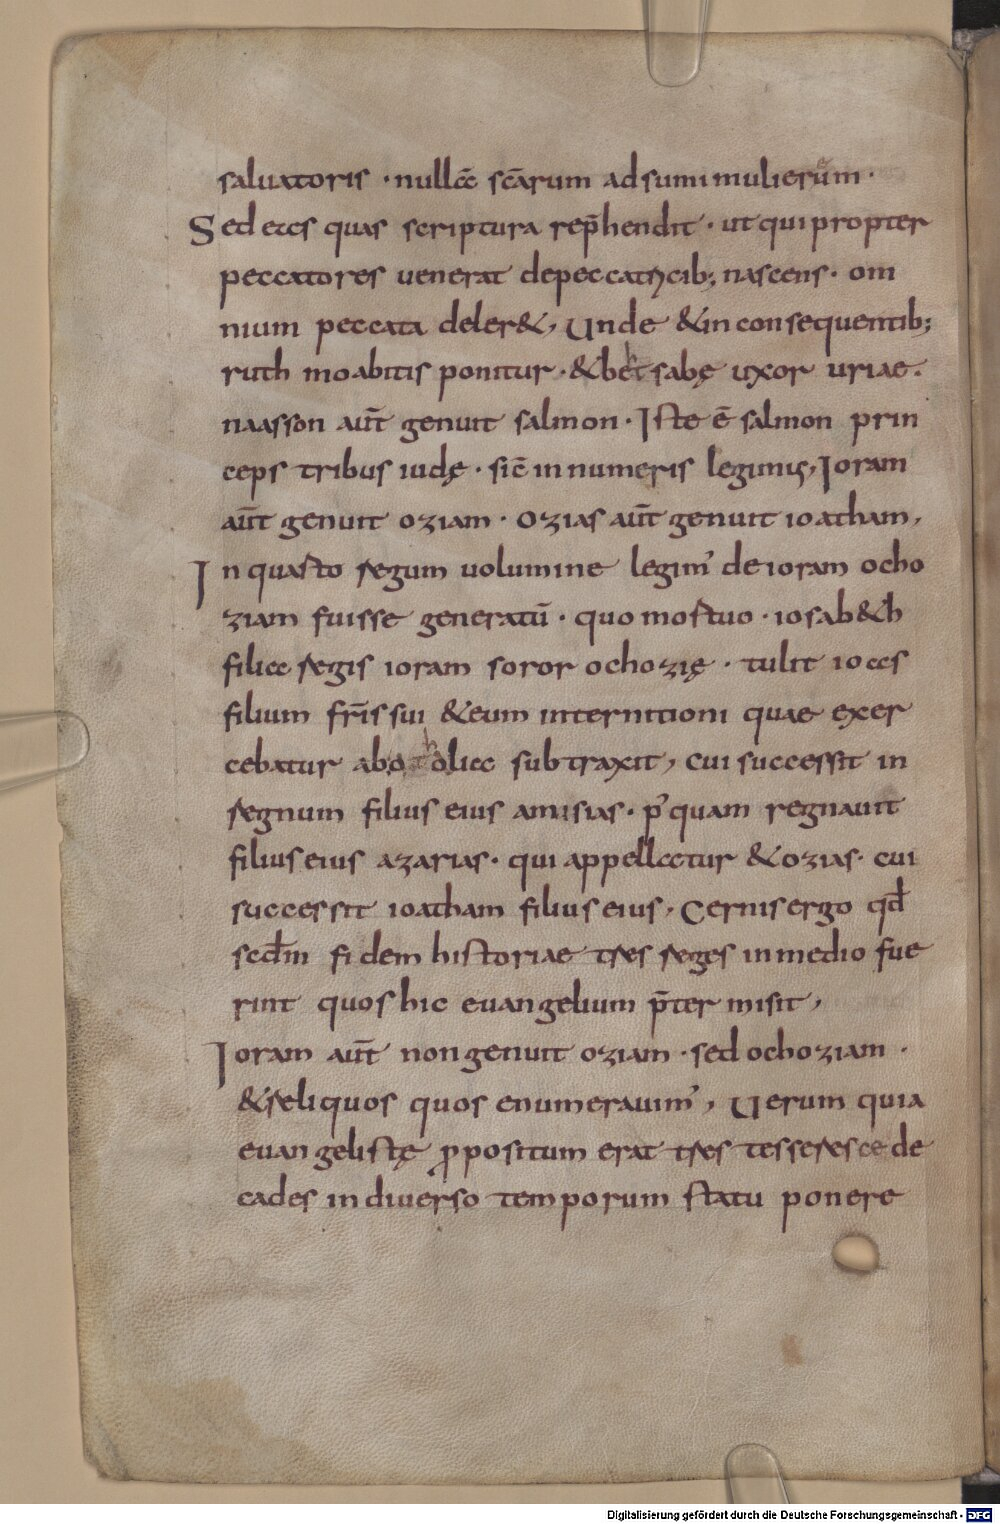 saluatoris · nullā sc̄arum adsumi mulierūm ·
Sed eas quas scriptura rep̄hendit · ut qui propter
peccatores uenerat depeccatricib; nascens · om
nium peccata deler&, Unde & in consequentib;
ruth moabitis ponitur · & bethsabę uxor uriae.
naasson aut̄ genuit salmon · Iste ē salmon prin
ceps tribus iudę · sic̄ in numeris legimus, Ioram
aut̄ genuit oziam · ozias aut̄ genuit ioatham,
In quarto regum uolumine legim' de ioram ocho
ziam fuisse generatū · quo mortuo · iosab&h
filia regis ioram soror ochozię · tulit ioas
filium fr̄is sui & eum internitioni quae exer
cebatur ab otholia subtraxit, cui successit in
regnum filius eius amasias. p' quam regnauit
filius eius azarias · qui appellatur & ozias · cui
successit ioatham filius eius, Cernis ergo qđ
scđm fidem historiae tres reges in medio fue
rint quos hic euangelium p̄termisit,
Ioram aut̄ non genuit oziam · sed ochoziam ·
& reliquos quos enumerauim', Uerum quia
euangelistę ꝓpositum erat tres tesseresce de
cades in diuerso temporum statu ponere
Digitalisierung gefördert durch die Deutsche Forschungsgemeinschaft - DFG